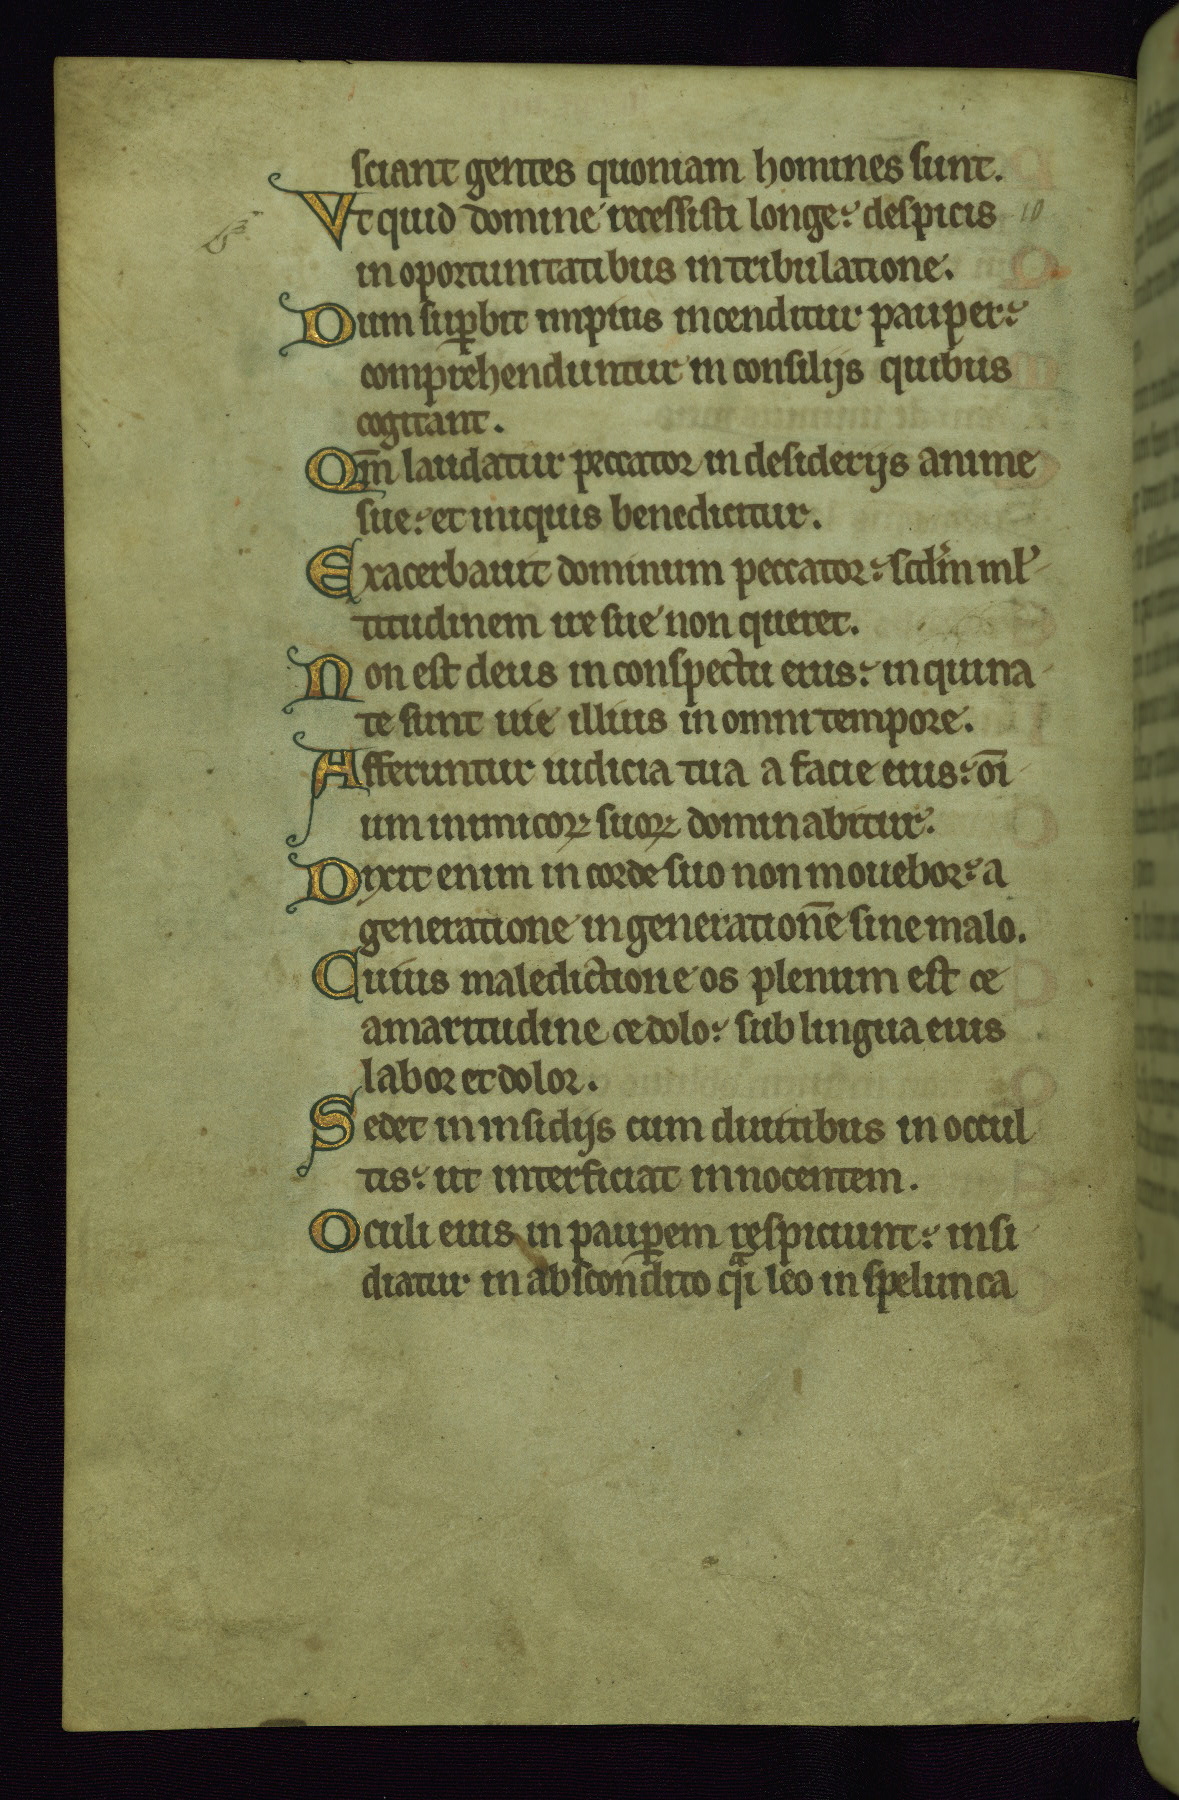 sciant gentes quoniam homines sunt.
Vt quid domine recessisti longe: despicis 10
in oportunitatibus in tribulatione.
Dum sup̲bit impius incenditur pauper:
comprehenduntur in consilijs quibus
cogitant.
Qm̅ laudatur peccator in desiderijs anime
sue: et iniquis benedicitur.
Exacerbauit dominum peccator: scdm̅ ml'
titudinem ire sue non queret.
Non est deus in conspectu eius: inquina
te sunt uie illius in omni tempore.
Afferuntur iudicia tua a facie eius: oi̅
um inimicoꝝ suoꝝ dominabitur.
Dixit enim in corde suo non mouebor: a
generatione in generatione̅ sine malo.
Cuius maledictione os plenum est ce
amaritudine ce dolo: sub lingua eius
labor et dolor.
Sedet in insidijs cum diuitibus in occul
tis: ut interficiat innocentem.
Oculi eius in paup̲em respiciunt: insi
diatur in abscondito qͣi leo in spelunca